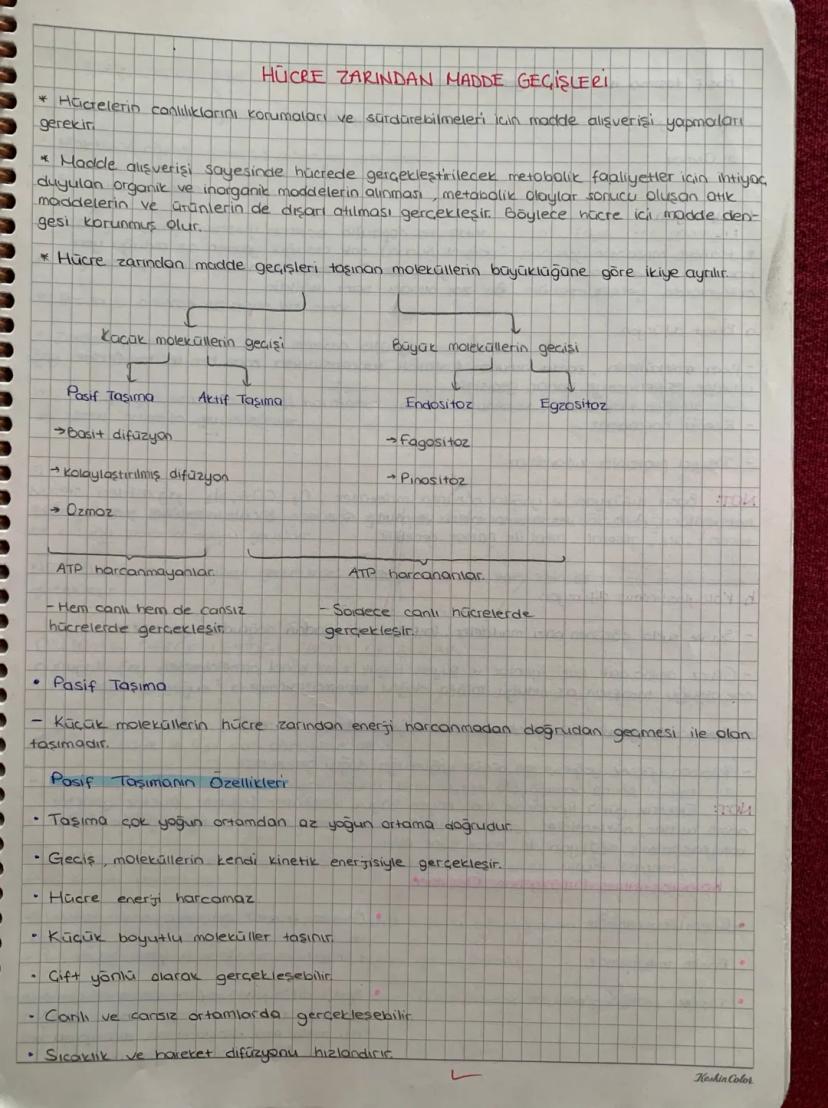 HÜCRE ZARINDAN MADDE GEÇİŞLERİ
* Hücrelerin canlılıklarını korumaları ve sürdürebilmeleri için madde alışverişi yapmaları
gerekir.
* Madde alışverişi sayesinde hücrede gerçekleştirilecek metabolik faaliyetler için ihtiyaç
duyulan organik ve inorganik maddelerin alınması, metabolik olaylar sonucu oluşan atık
maddelerin ve ürünlerin de dışarı atılması gerçekleşir. Böylece hücre içi madde den-
gesi korunmuş olur.
* Hücre zarından madde geçişleri taşınan moleküllerin büyüklüğüne göre ikiye ayrılır.
Küçük moleküllerin geçişi
Büyük moleküllerin geçişi
Pasif Taşıma
Aktif Taşıma
Endositoz
Egzositoz
→ Basit difüzyon
→ Fagositoz
→ Kolaylaştırılmış difüzyon
→ Pinositoz
→ Ozmoz
ATP harcanmayanlar.
ATP harcananlar.
- Hem canlı hem de cansız
hücrelerde gerçekleşir.
- Sadece canlı hücrelerde
gerçekleşir.
• Pasif Taşıma
- Küçük moleküllerin hücre zarından enerji harcanmadan doğrudan geçmesi ile olan
taşımadır.
Pasif Taşımanın Özellikleri
• Taşıma çok yoğun ortamdan az yoğun ortama doğrudur.
• Geçiş, moleküllerin kendi kinetik enerjisiyle gerçekleşir.
• Hücre enerji harcamaz.
• Küçük boyutlu moleküller taşınır.
• Çift yönlü olarak gerçekleşebilir.
• Canlı ve cansız ortamlarda gerçekleşebilir.
• Sıcaklık ve hareket difüzyonu hızlandırır.
Keskin Color